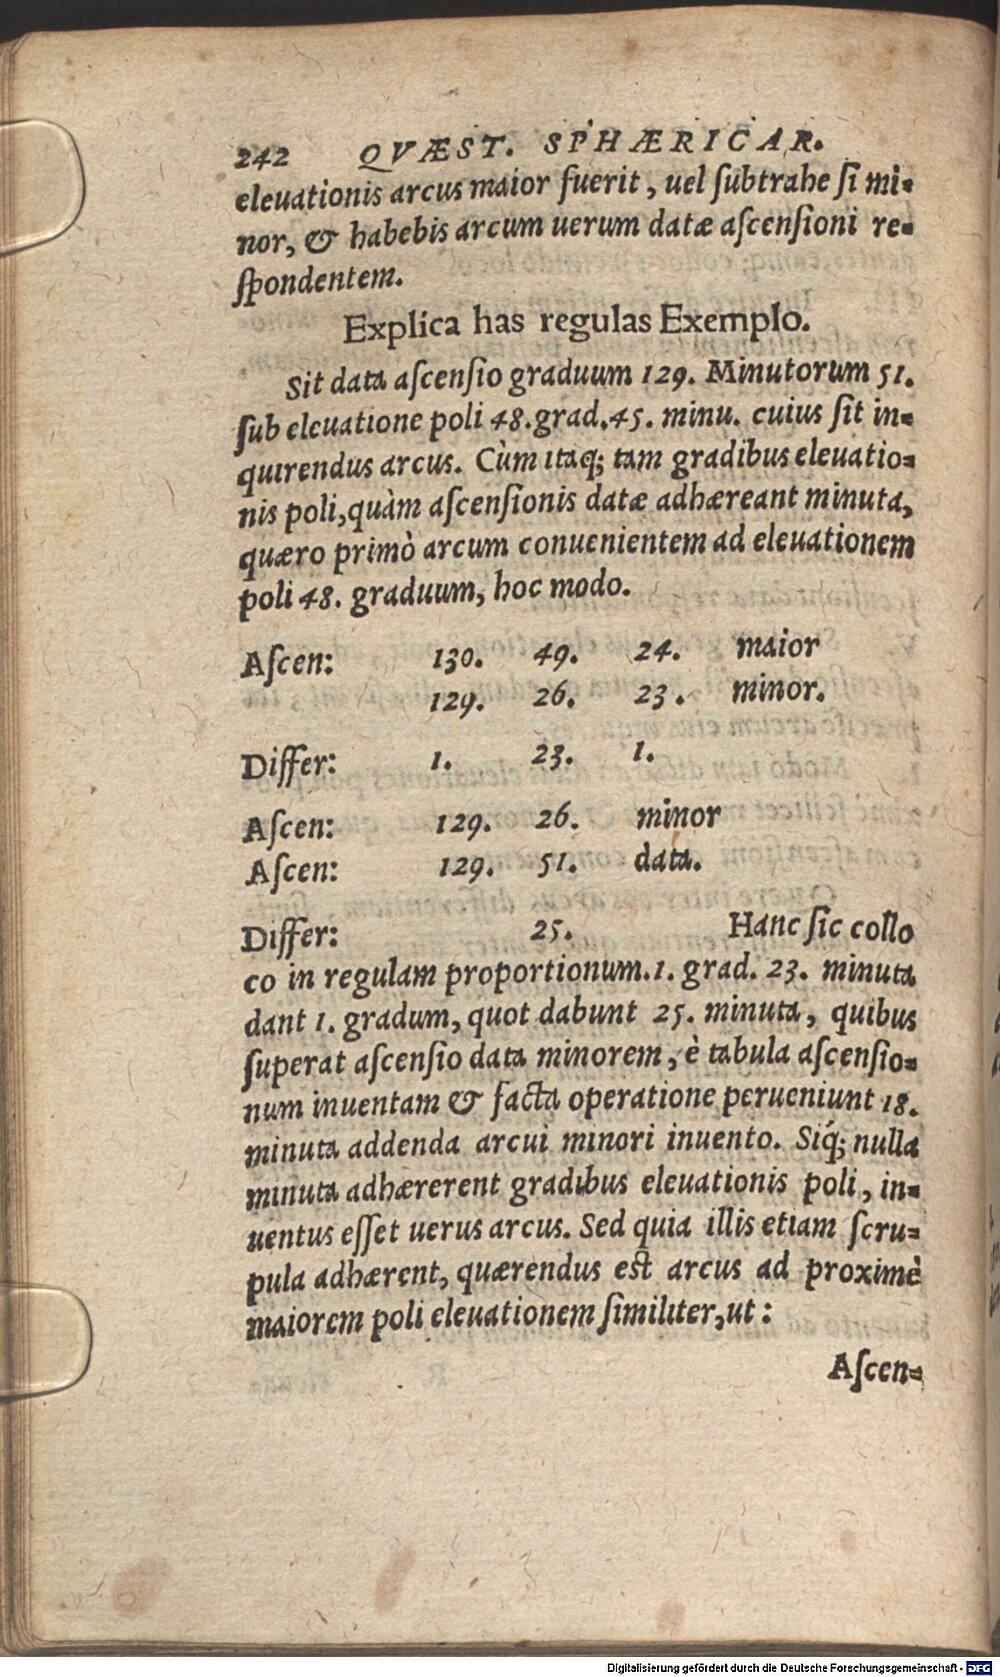 242 QVÆST. SPHÆRICAR.
eleuationis arcus maior fuerit, uel ſubtrahe ſi mi-
nor, & habebis arcum uerum datæ aſcenſioni re-
ſpondentem.
Explica has regulas Exemplo.
Sit data aſcenſio graduum 129. Minutorum 51.
ſub eleuatione poli 48. grad. 45. minu. cuius ſit in-
quirendus arcus. Cùm itaq; tam gradibus eleuatio-
nis poli, quàm aſcenſionis datæ adhæreant minuta,
quæro primò arcum conuenientem ad eleuationem
poli 48. graduum, hoc modo.
Aſcen: 130. 49. 24. maior
129. 26. 23. minor.
Differ: 1. 23. 1.
Aſcen: 129. 26. minor
Aſcen: 129. 51. data.
Differ: 25. Hanc ſic collo
co in regulam proportionum. 1. grad. 23. minuta
dant 1. gradum, quot dabunt 25. minuta, quibus
ſuperat aſcenſio data minorem, è tabula aſcenſio-
num inuentam & facta operatione perueniunt 18.
minuta addenda arcui minori inuento. Siq́; nulla
minuta adhærerent gradibus eleuationis poli, in-
uentus eſſet uerus arcus. Sed quia illis etiam ſcru-
pula adhærent, quærendus est arcus ad proximè
maiorem poli eleuationem ſimiliter, ut:
Aſcen-
Digitalisierung gefördert durch die Deutsche Forschungsgemeinschaft - DFG